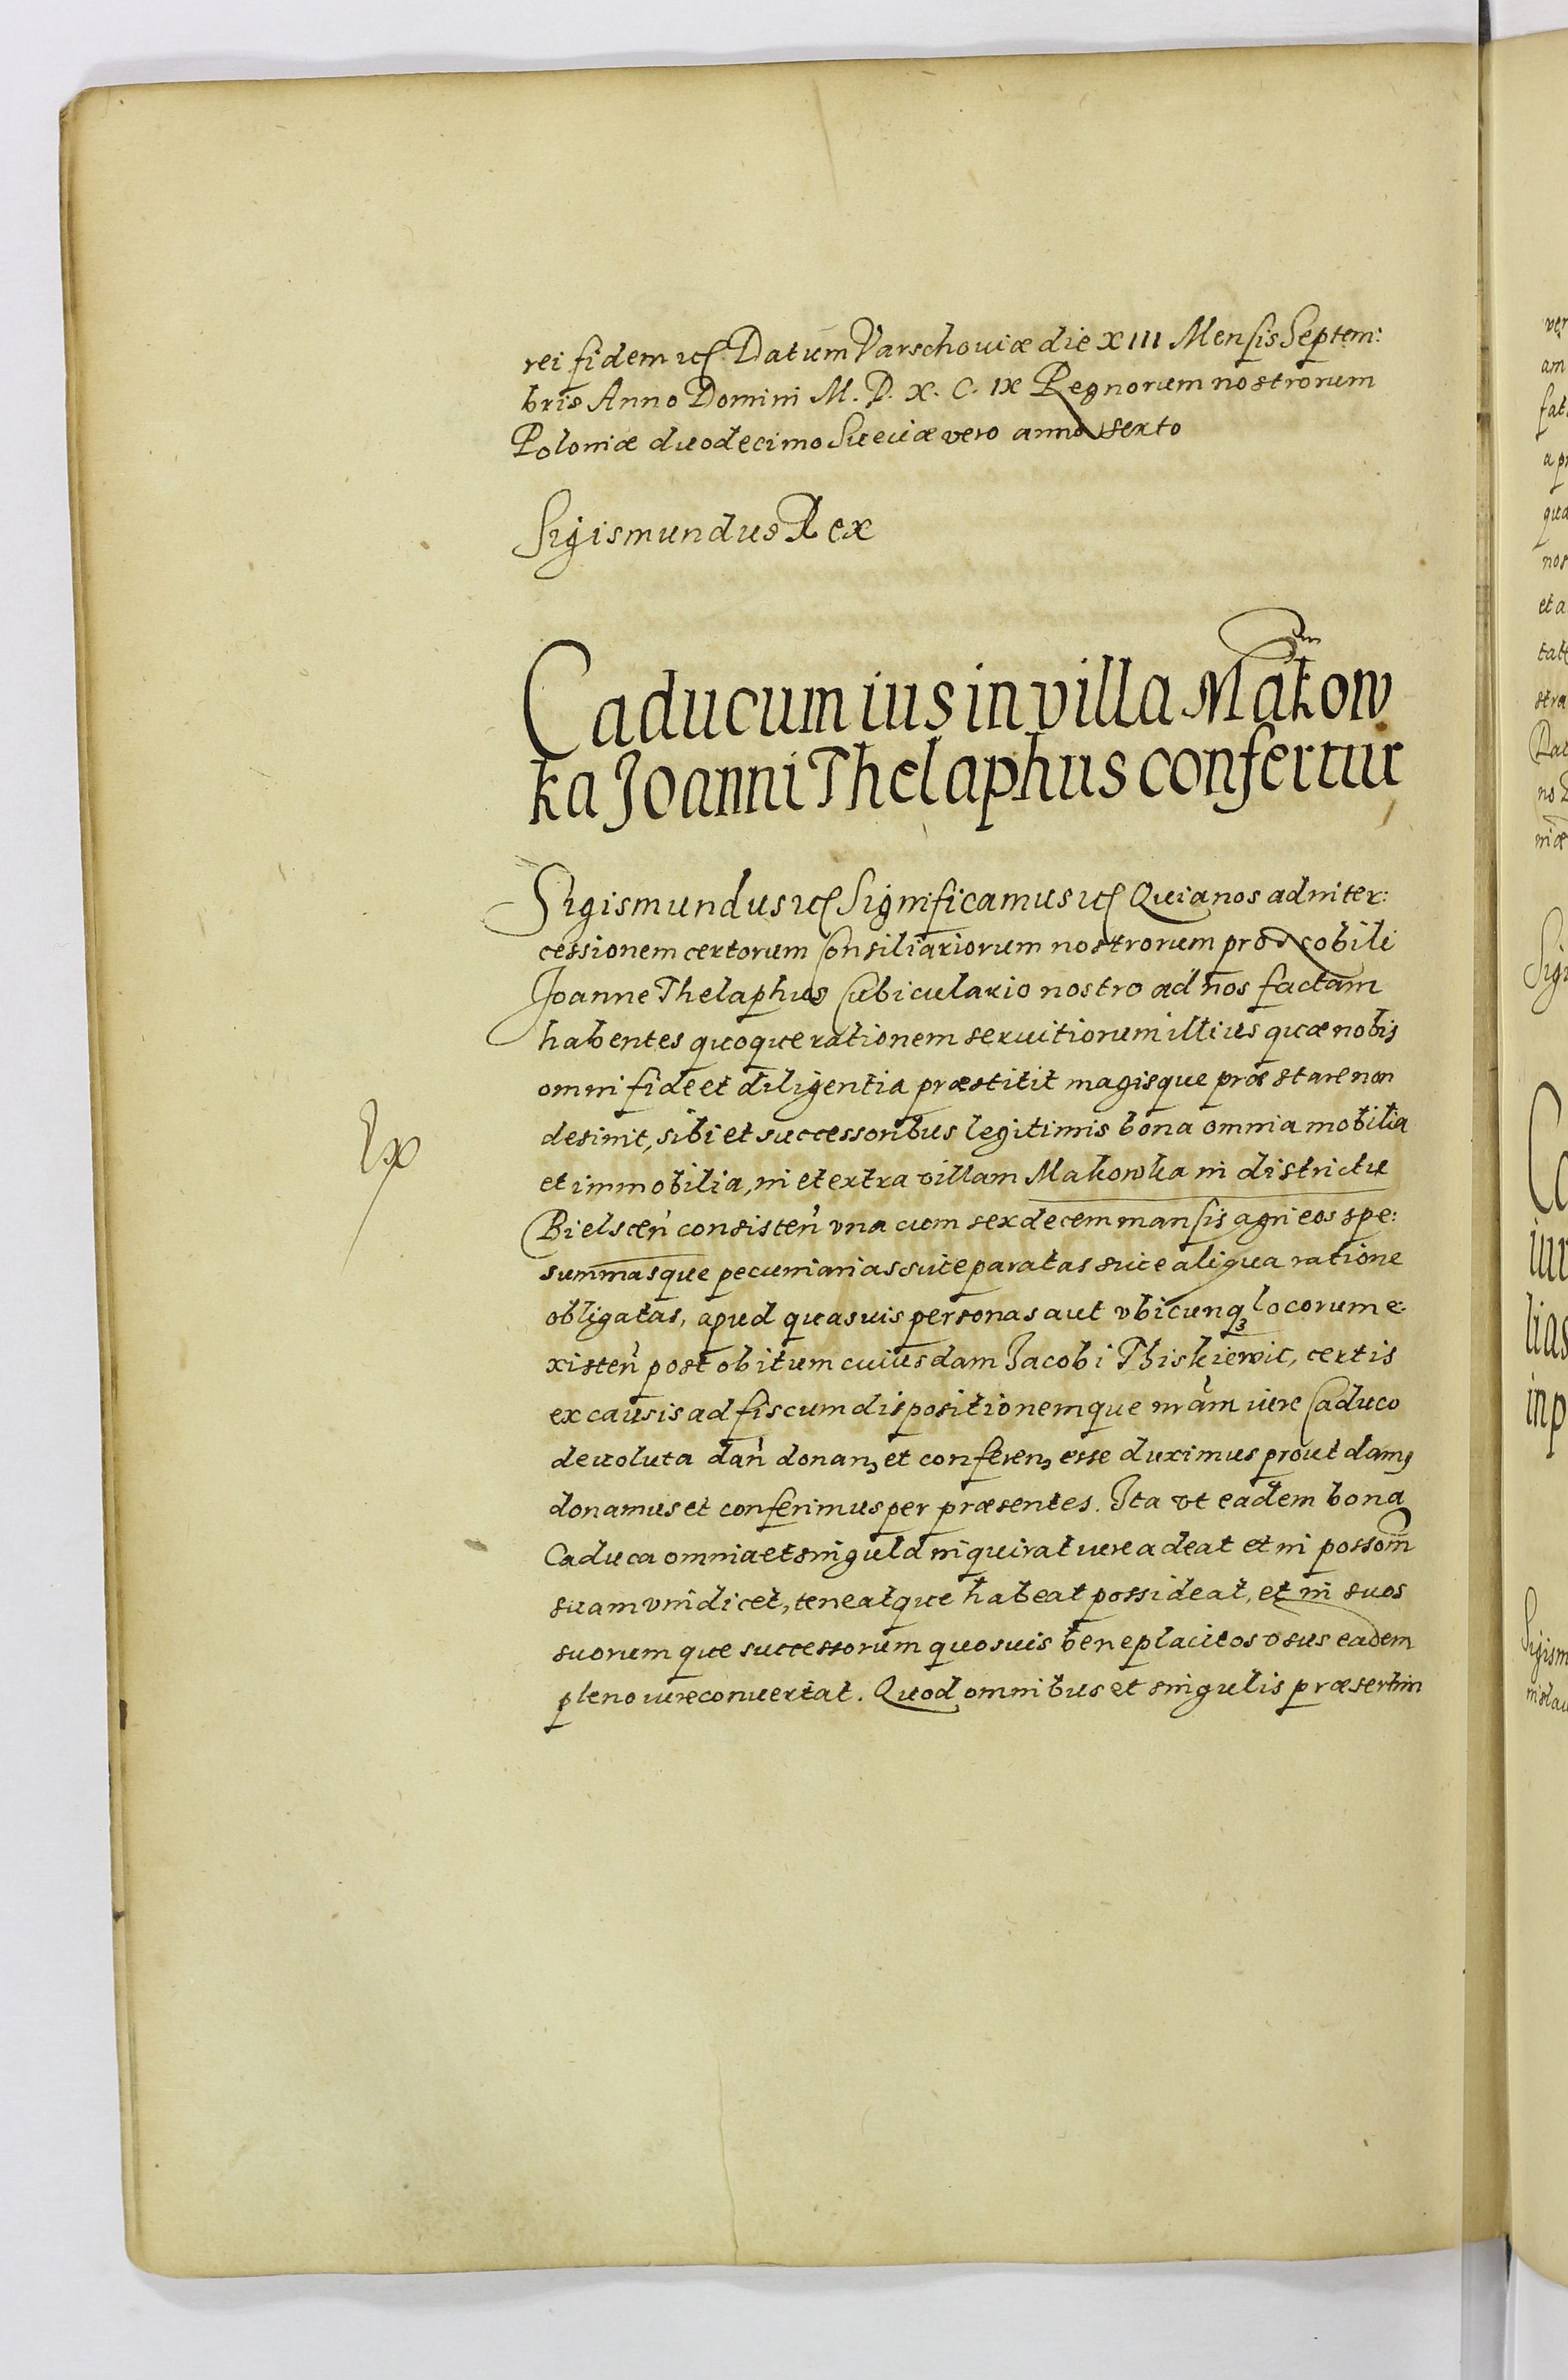 rei fidem etc. Datum Varschoviæ die XIII Mensis Septem:
bris Anno Domini M. D. X. C. IX Regnorum nostrorum
Poloniæ duodecimo Sueciæ vero anno sexto
Sigismundus Rex
Caducum ius in villa Makow
ka Joanni Thelaphus confertur
Sigismundus etc Significamus etc Quia nos ad niter:
cessionem certorum Consiliariorum nostrorum pro
Joanne Thelaphus Cubiculario nostro ad nos factam
habentes quoque rationem seruitiorum illius quæ nobis
omni fide et diligentia præstitit magisque præstare non
desinit, sibi et successoribus legitimis bona omnia mobilia
et immobilia, in et extra villam Makowka in districtu
Bielsceń consisteń vna cum sexdecem mansis agri eos spe:
summasque pecuniarias siue paratas siue aliqua ratione
obligatas, apud quasuis personas aut vbicunqꝫ locorum e:
xisteń post obitum cuiusdam Jacobi Thiskiewic, certis
ex causis ad fiscum dispositionemque nrãm iure Caduco
deuoluta dań donanꝫ et conferenꝫ esse duximus prout damꝰ
donamus et conferimus per præsentes. Ita vt eadem bona
Caduca omnia et singula inquirat iure adeat et in possom̃
suam vindicet, teneatque habeat possideat, et in suos
suorum que successorum quosuis beneplacitos vsus eadem
pleno iure conuertat. Quod omnibus et singulis præsertim
Ex